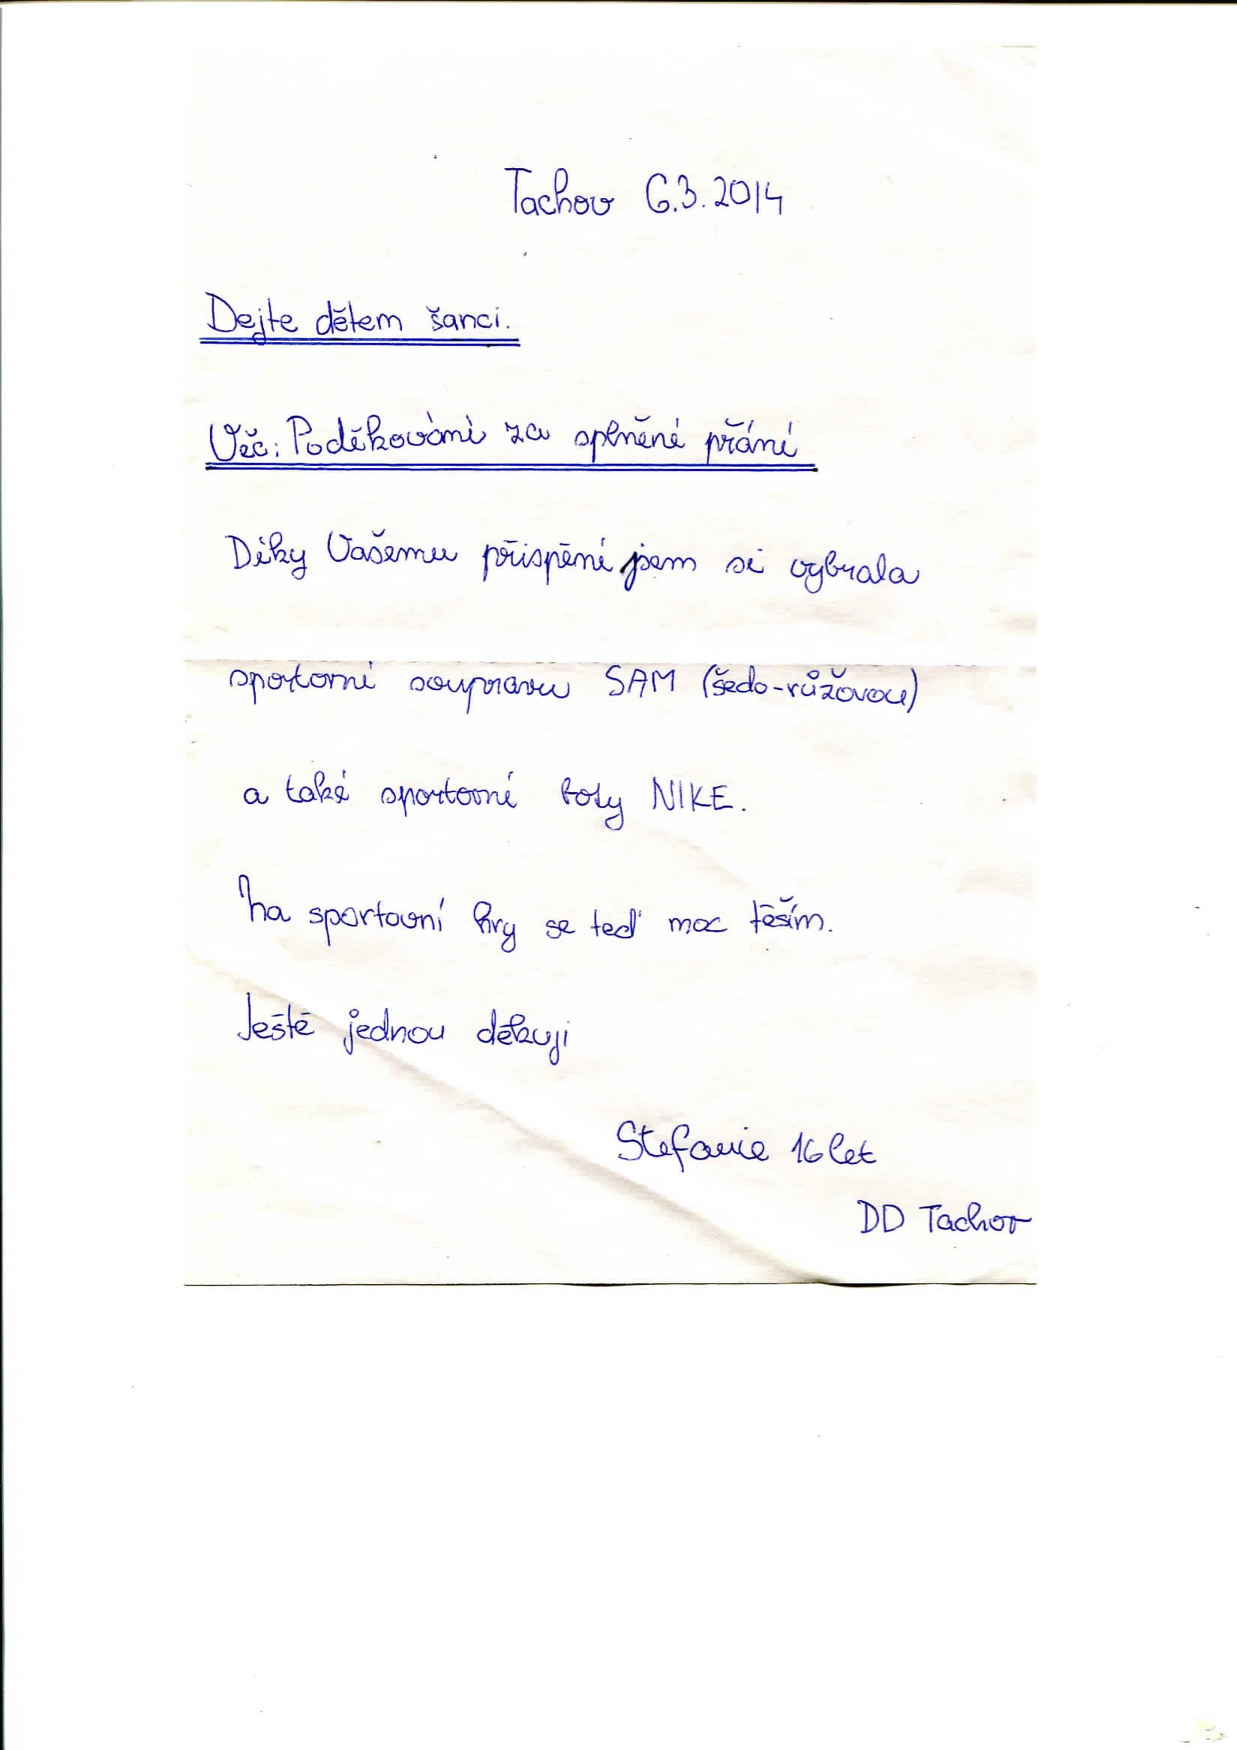 Tachov 6.3.2014
Dejte dětem šanci.
Věc: Poděkování za splněné přání
Díky Vašemu přispění jsem si vybrala
sportovní soupravu SAM (šedo-růžovou)
a také sportovní boty NIKE.
Na sportovní hry se teď moc těším.
Ještě jednou děkuji
Stefanie 16 let
DD Tachov